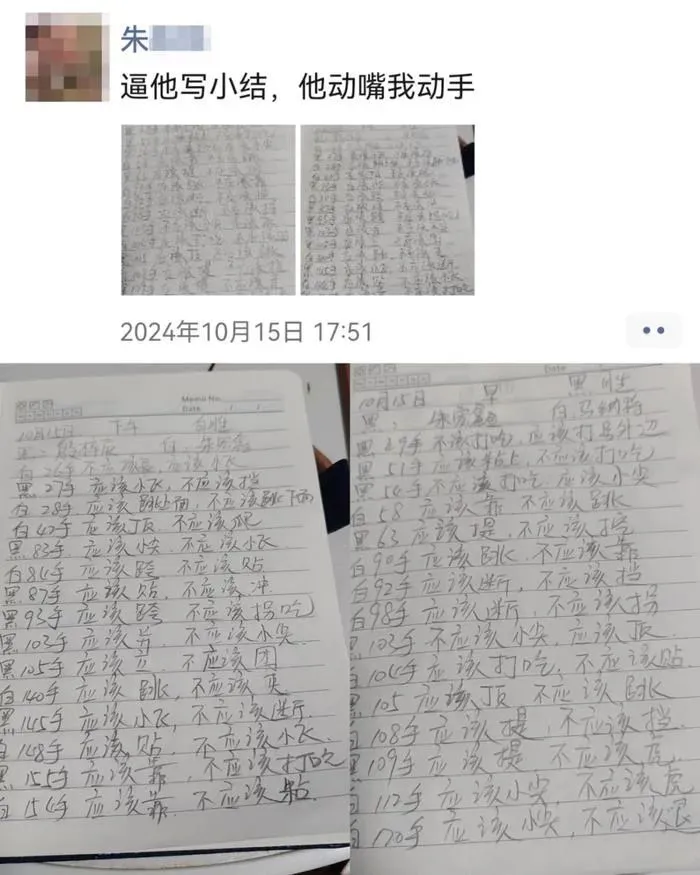 朱
逼他写小结，他动嘴我动手
2024年10月15日 17:51
Memo No.
Date / /
10月15日 下午 白胜
白26手不应该长，应该小飞
黑27手 应该小飞，不应该挡
白28手 应该跳上面，不应该跳下面
白42手 应该顶，不应该爬
黑83手 应该小尖，不应该小飞
白84手 应该跨 不应该贴
黑87手 应该贴，不应该冲
黑93手 应该跨 不应该拐吃
黑103手 应该并，不应该小尖
黑105手 应该立，不应该团
白140手 应该跳，不应该夹
黑145手 应该小飞，不应该断
白148手 应该贴，不应该小飞
黑155手 应该靠，不应该打吃
白154手 应该靠，不应该粘
Date
10月15日 早 黑胜
黑49手 不该打吃，应该打另外边
黑51手 应该粘上，不应该打吃
黑54手 不应该打吃 应该小尖
白58 应该靠 不应该跳
黑63 应该提，不应该挖
白90手 应该跳，不应该靠
白92手 应该断，不应该挡
白98手 应该断，不应该拐
黑103手 不应该小尖，应该顶
白104手 应该打吃，不应该贴
黑105 应该顶 不应该跳
白108手 应该提，不应该挡
黑109手 应该提 不应该虎
白112手 应该小尖，不应该虎
白120手 应该小尖，不应该